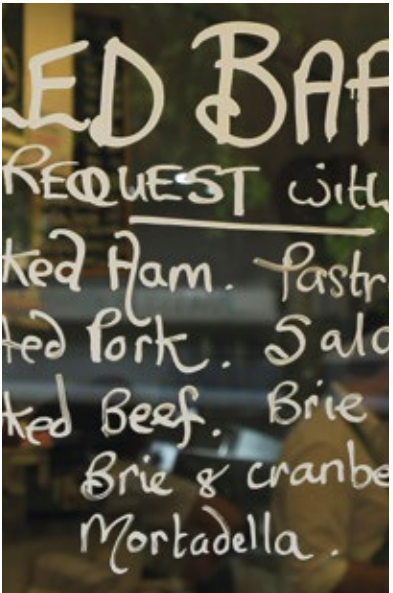 ED BAP
REQUEST with
ked Ham. Pastr
ted Pork. Sala
ked Beef. Brie
Brie & cranbe
Mortadella.